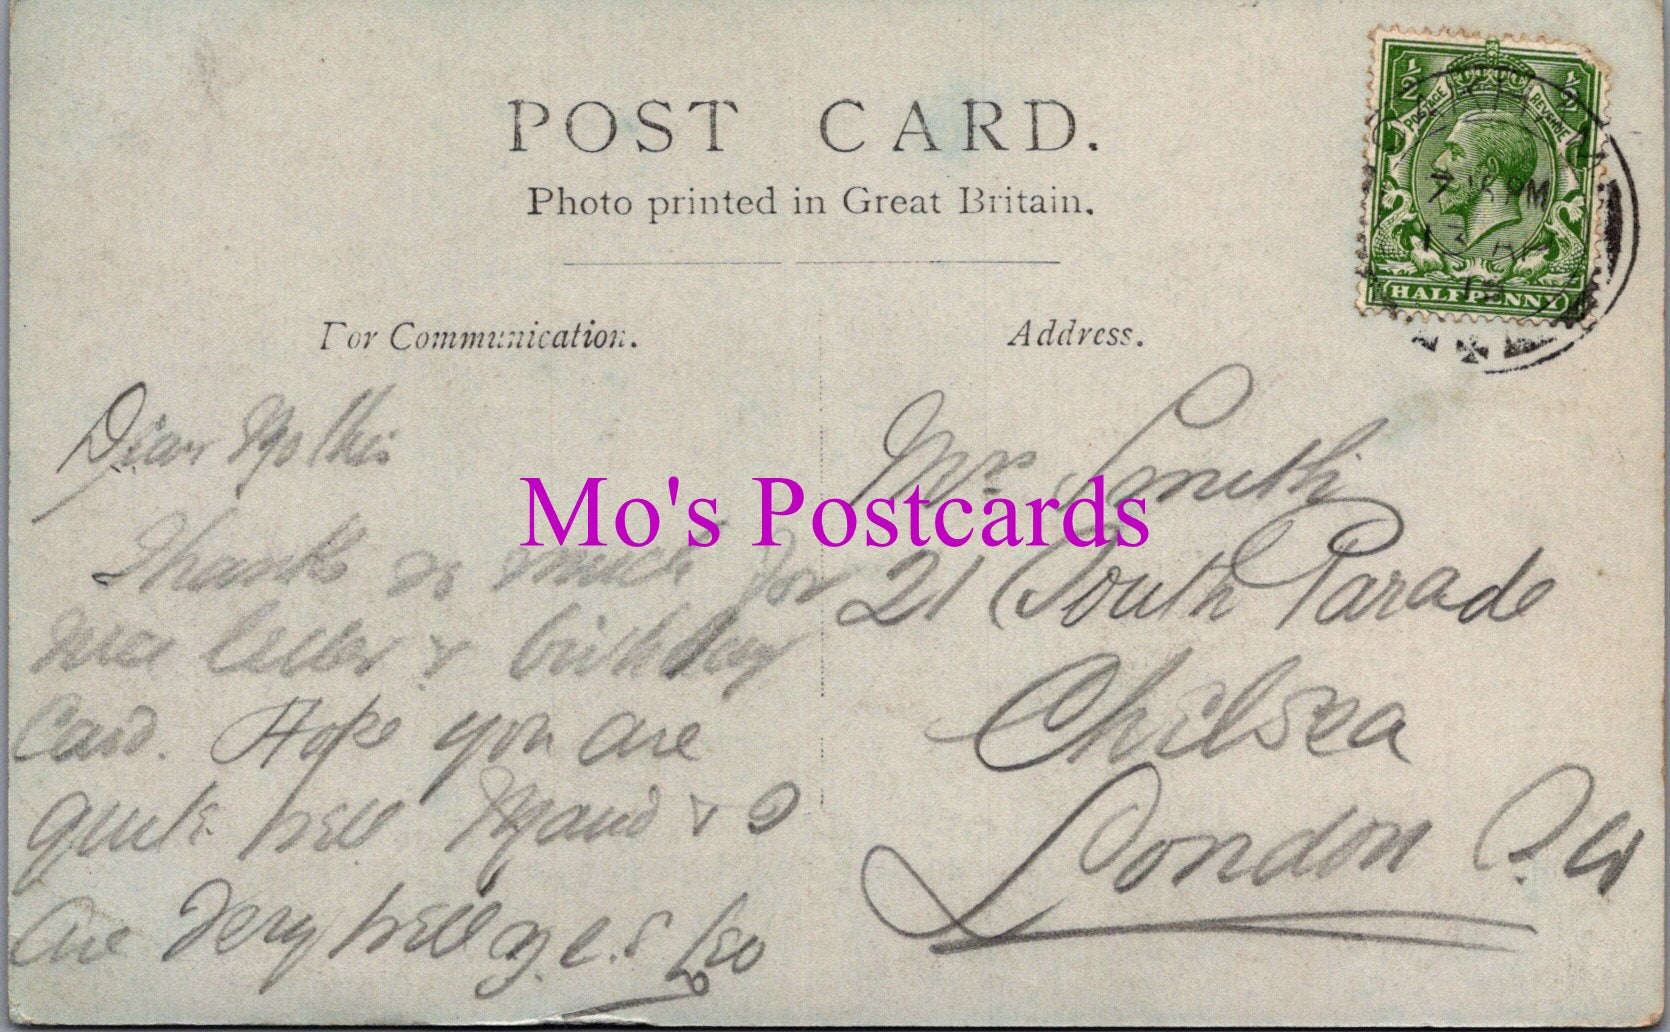 POST CARD.
Photo printed in Great Britain.
For Communication.
Address.
½ ½
POSTAGE REVENUE
7 15 PM
13
HALFPENNY
Dear Mother
Thanks so much for
nice letter & birthday
Card. Hope you are
quite well Maud & I
are very well y.l.s Leo
Mrs Smith
21 South Parade
Chelsea
London S.W
Mo's Postcards